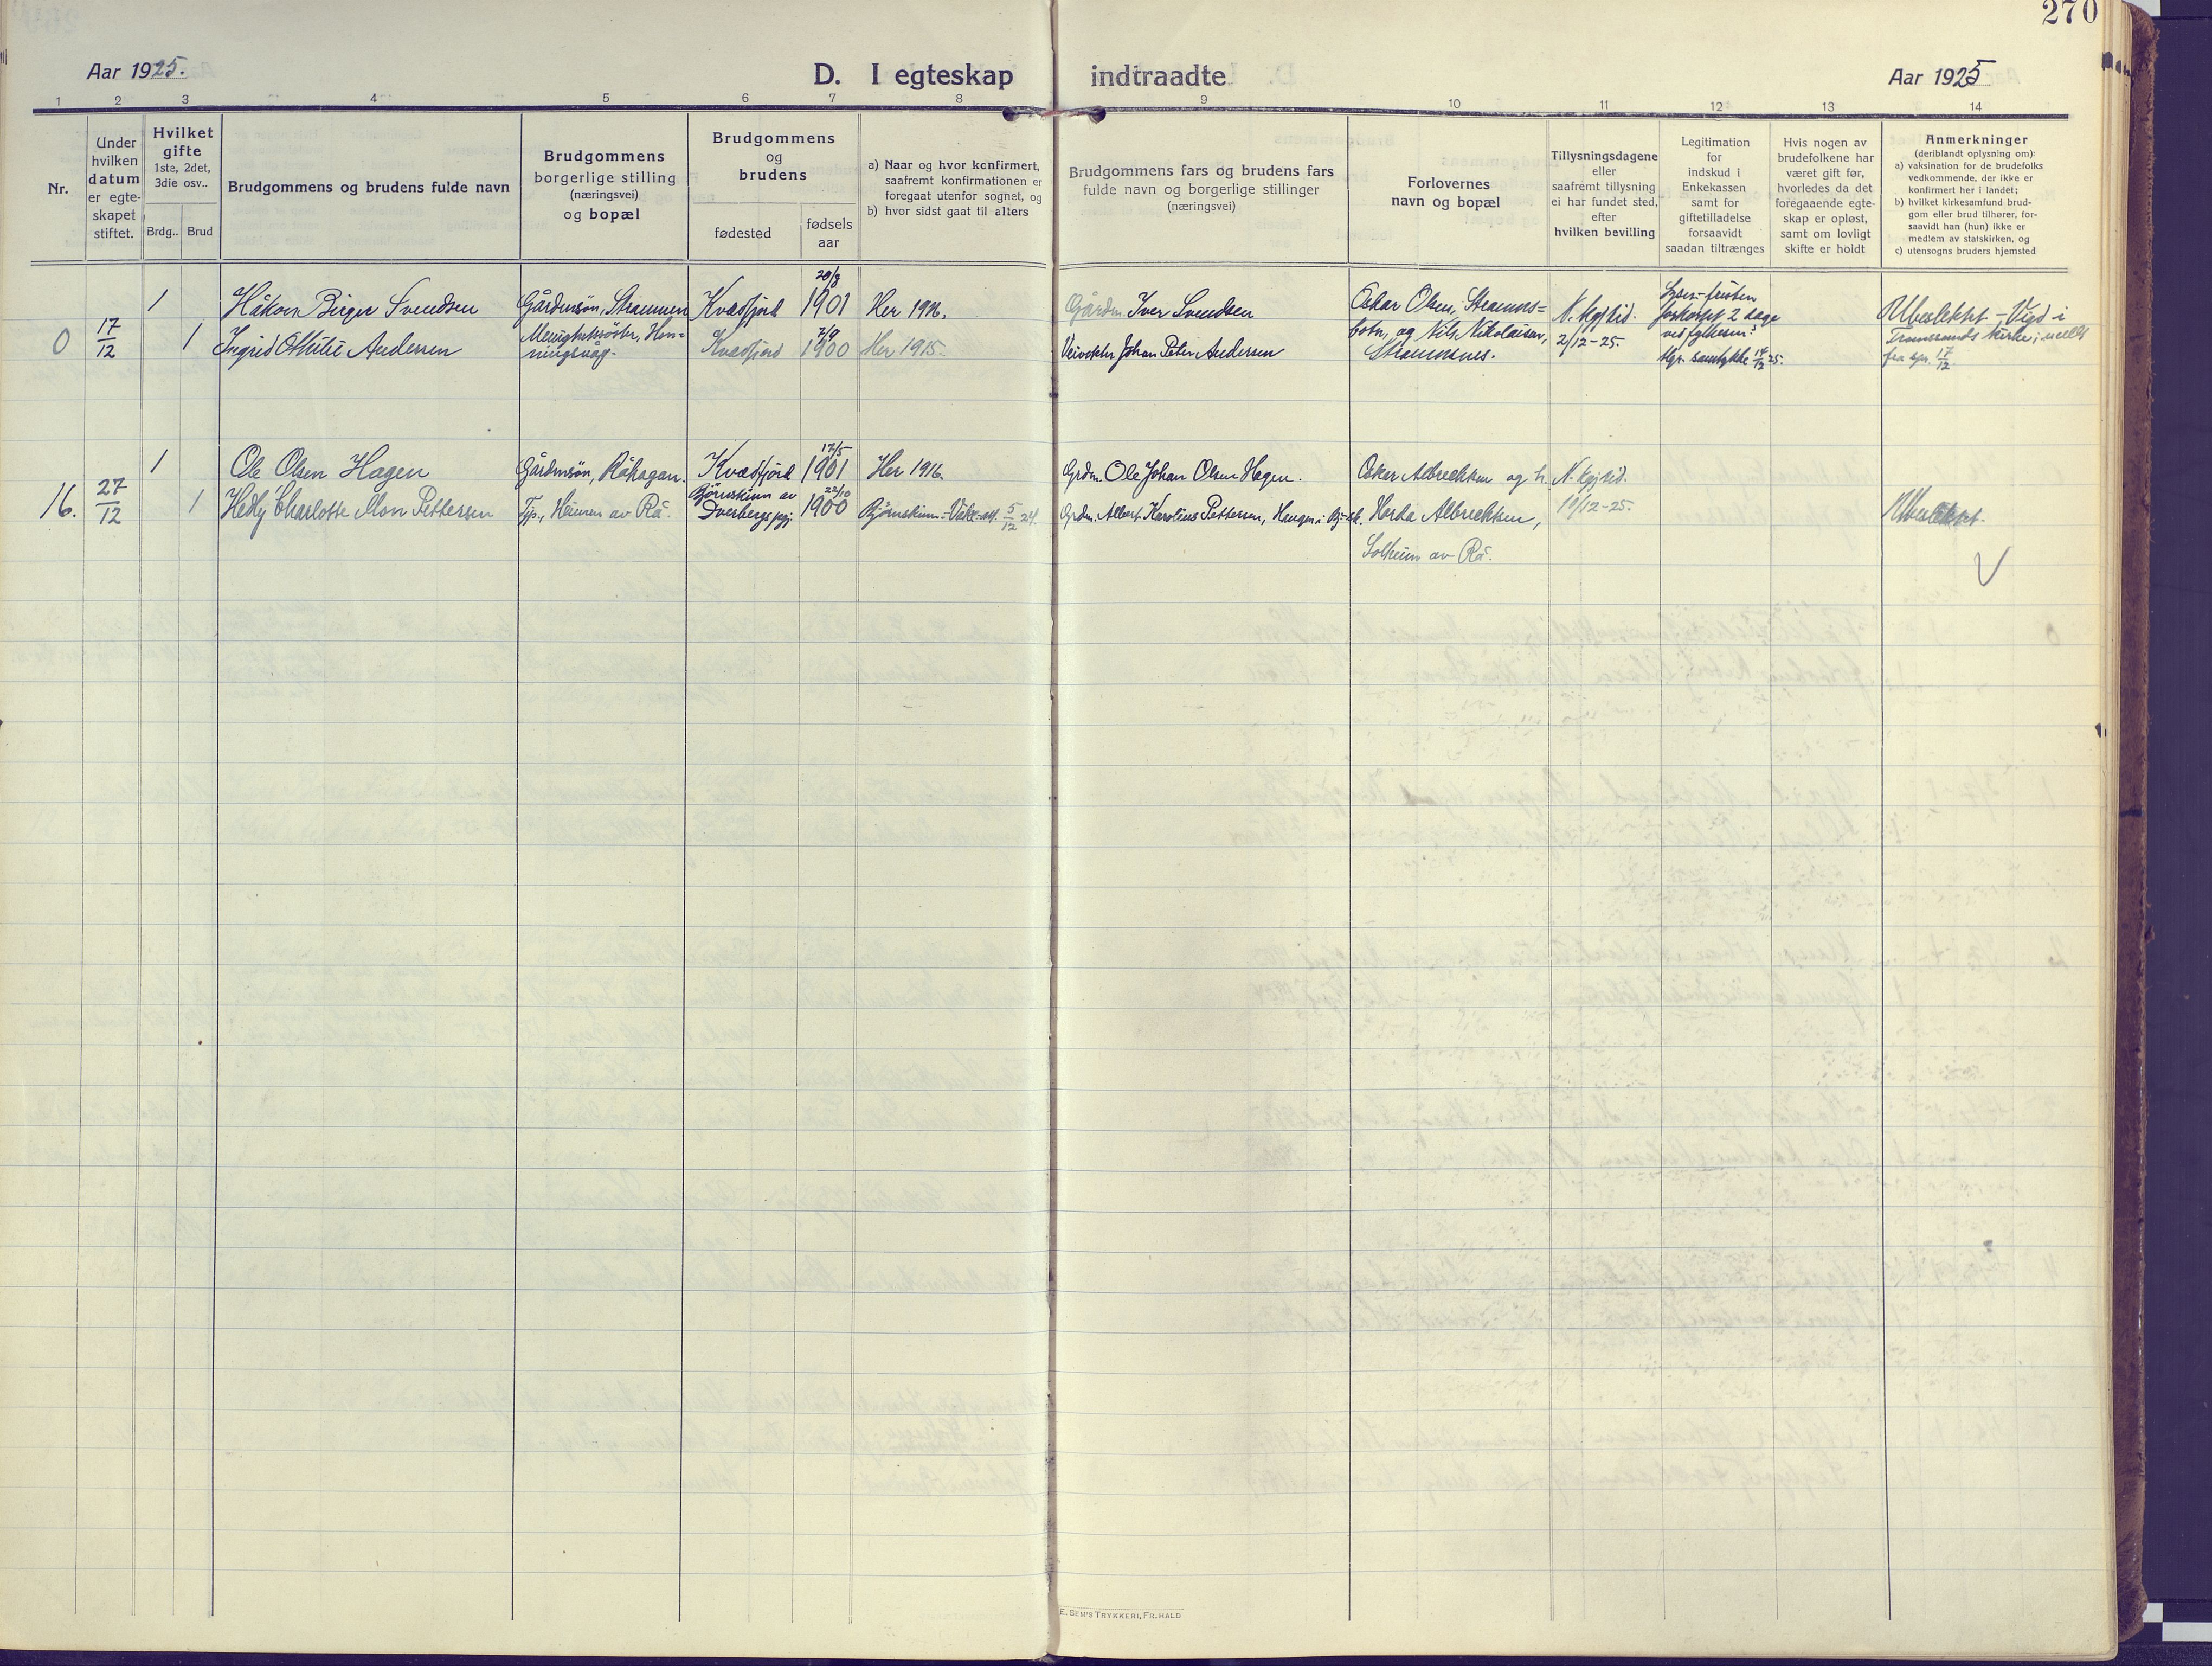 270
Aar 1925.
D. I egteskap indtraadte
Aar 1925
1 2 3 4 5 6 7 8 9 10 11 12 13 14
Nr.
Under
hvilken
datum
er egte-
skapet
stiftet.
Hvilket
gifte
1ste, 2det,
3die osv..
Brdg.. Brud
Brudgommens og brudens fulde navn
Brudgommens
borgerlige stilling
(næringsvei)
og bopæl
Brudgommens
og
brudens
fødested
fødsels
aar
a) Naar og hvor konfirmert,
saafremt konfirmationen er
foregaat utenfor sognet, og
b) hvor sidst gaat til alters
Brudgommens fars og brudens fars
fulde navn og borgerlige stillinger
(næringsvei)
Forlovernes
navn og bopæl
Tillysningsdagene
eller
saafremt tillysning
ei har fundet sted,
efter
hvilken bevilling
Legitimation
for
indskud i
Enkekassen
samt for
giftetilladelse
forsaavidt
saadan tiltrænges
Hvis nogen av
brudefolkene har
været gift før,
hvorledes da det
foregaaende egte-
skap er opløst,
samt om lovligt
skifte er holdt
Anmerkninger
(deriblandt oplysning om):
a) vaksination for de brudefolks
vedkommende, der ikke er
konfirmert her i landet;
b) hvilket kirkesamfund brud-
gom eller brud tilhører, for-
saavidt han (hun) ikke er
medlem av statskirken, og
c) utensogns bruders hjemsted
0
17/12
1
Håkon Birger Svendsen
Gårdmsøn, Straumen
Kvædfjord
20/8
1901
Her 1916.
Gårdm. Iver Svendsen
Oskar Olsen, Straums=
botn, og Nils Nikolaisen,
Straumsnes.
N. kgj. tid.
2/12-25.
forkortet 2 dage
ved fylkesm.
samtykke 14/12 25.
Ubeslektet - Viet i
kirke, meldt
fra spr. 17/12.
1
Ingrid Othilie Andersen
Menighetssøster, Hon=
ningsvåg.
Kvædfjord
7/9
1900
Her 1915.
Johan Peter Andersen
16.
27/12
1
Ole Olsen Hagen
Gårdmsøn, Råhagan.
Kvædfjord
17/5
1901
Her 1916.
Grdm. Ole Johan Olsen Hagen.
Oskar Albrektsen og h.
Herda Albrektsen,
Solheim av Rå.
N. kgj. tid.
19/12-25.
1
Hedly Charlotte Mon Pettersen
Tjp., Heimen av Rå.
Bjørnskinn av
Dverbergs pgj.
22/10
1900
Bjørnskinn.- 5/12 24.
Grdm. Albert Karolius Pettersen, Haugen i Bj-sk.
Ubeslektet.
E. SEM'S TRYKKERI, FR.HALD